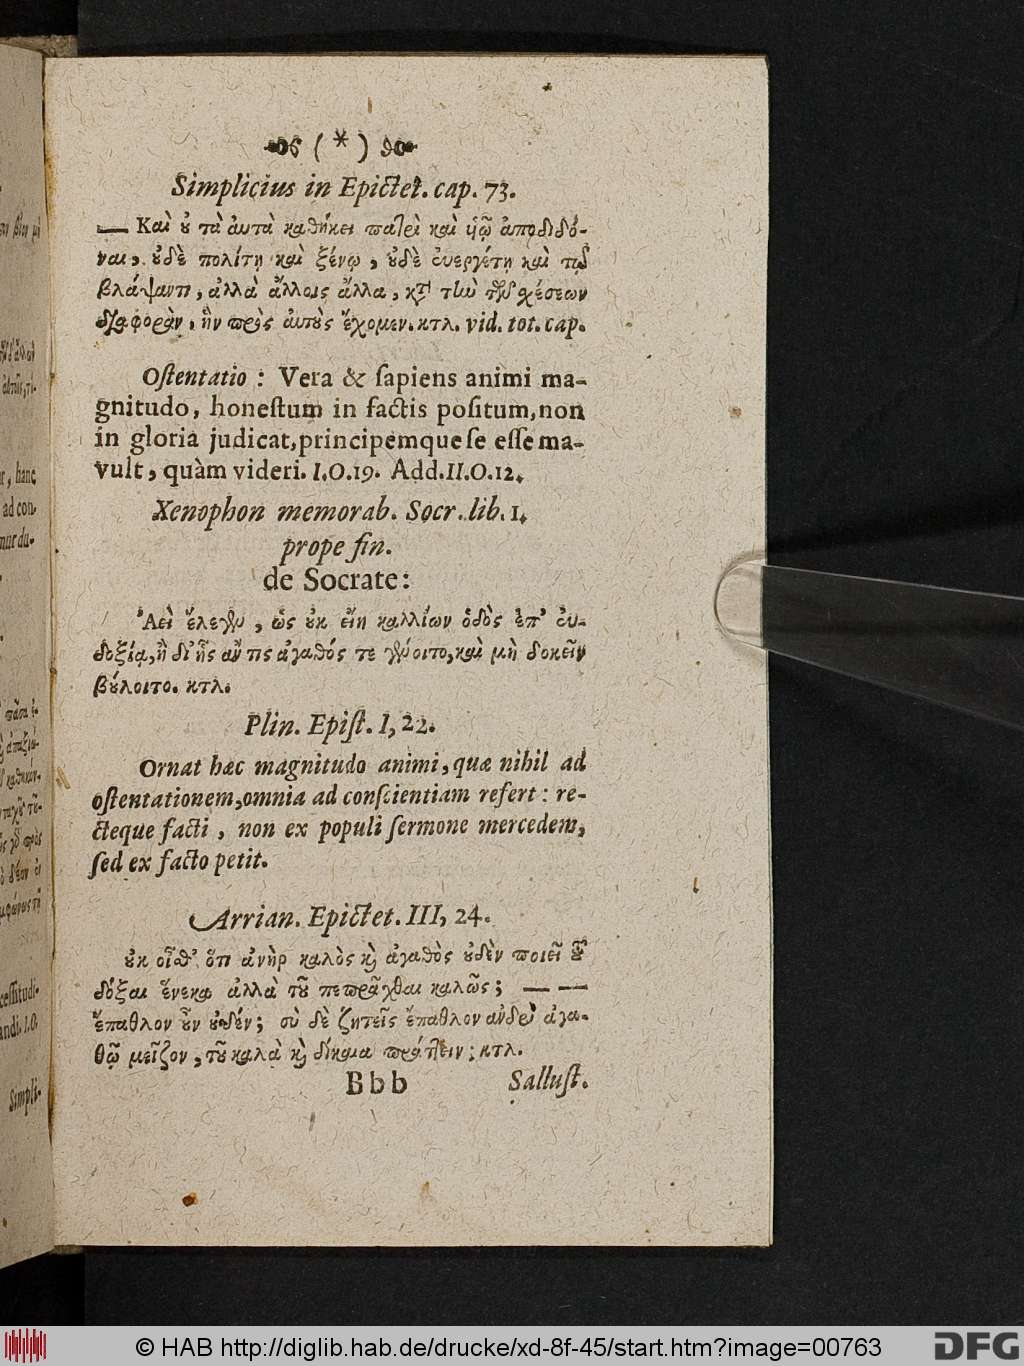 ( * )
Simplicius in Epictet. cap. 73.
— Καὶ ȣ τὰ ἀυτὰ καθήκει πατρὶ καὶ ὑῷ ἀποδιδό-
ναι, ȣδὲ πολίτῃ καὶ ξένῳ, ȣδὲ ἐυεργέτῃ καὶ τῷ
βλάψαντι, ἀλλὰ ἄλλοις ἄλλα, κτ τὴν τῶν σχέσεων
διαφορὰν, ἣν πρὸς ἀυτȣς ἔχομεν. κτλ. vid. tot. cap.
Oſtentatio : Vera & ſapiens animi ma-
gnitudo, honeſtum in factis poſitum, non
in gloria judicat, principemque ſe eſſe ma-
vult, quàm videri. I.O.19. Add. II.O.12.
Xenophon memorab. Socr. lib. 1.
prope fin.
de Socrate:
Ἀεὶ ἔλεγεν, ὡς ȣκ εἴη καλλίων ὁδὸς ἐπ' ἐυ-
δοξίᾳ, ἢ δι' ἧς ἄν τις ἀγαθός τε γένοιτο, καὶ μὴ δοκεῖν
βȣλοιτο. κτλ.
Plin. Epiſt. I, 22.
Ornat hæc magnitudo animi, quæ nihil ad
oſtentationem, omnia ad conſcientiam refert: re-
cteque facti, non ex populi ſermone mercedem,
ſed ex facto petit.
Arrian. Epictet. III, 24.
ȣκ οἶσθ' ὅτι ἀνὴρ καλὸς κỳ ἀγαθὸς ȣδὲν ποιεῖ τȣ
δόξαι ἕνεκα ἀλλὰ τȣ πεπρᾶχθαι καλῶς; — —
ἔπαθλον ȣν ȣδέν; σὺ δὲ ζητεῖς ἔπαθλον ἀνδρὶ ἀγα-
θῷ μεῖζον, τȣ καλὰ κỳ δίκαια πράττειν; κτλ.
Bbb Salluſt.
© HAB http://diglib.hab.de/drucke/xd-8f-45/start.htm?image=00763
DFG